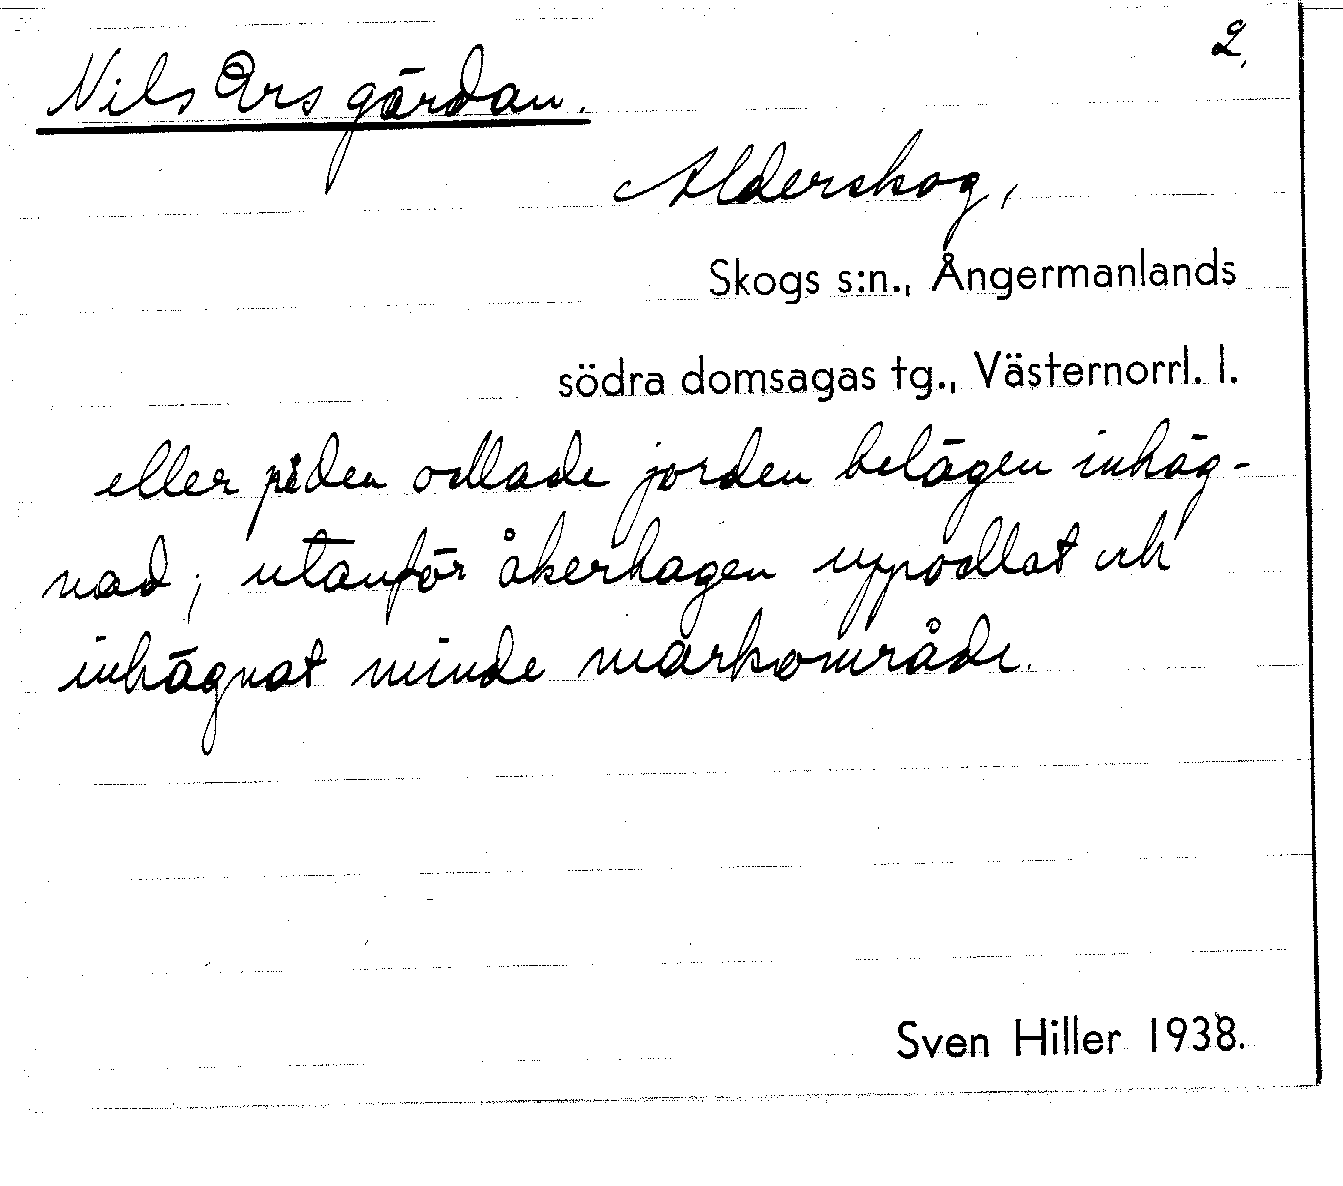 2.
Nils Ersgärdan.
Alderskog,
Skogs s:n., Ångermanlands
södra domsagas tg., Västernorrl. l.
eller på den odlade jorden belägen inhäg-
nad; utanför åkerhagen uppodlat och
inhägnat mindre markområde.
Sven Hiller 1938.